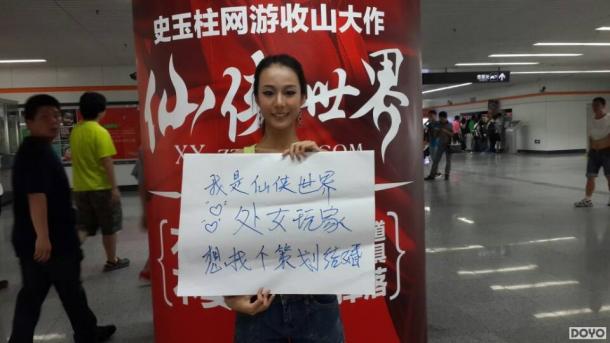 史玉柱网游收山大作
仙侠世界
我是仙侠世界
处女玩家
想找个策划结婚
DOYO